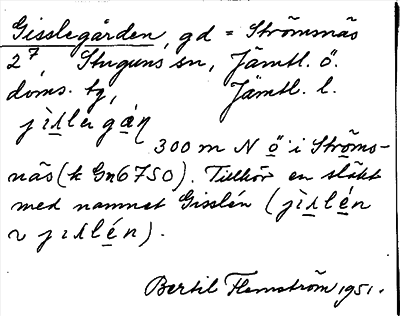 Gisslegården, gd = Strömnäs
2⁷, Stuguns sn, Jämtl. ö.
doms. tg, Jämtl. l.
jìʌlegáɳ
300 m N ö i Ströms-
näs (k Gn6750). Tillhör en släkt
med namnet Gisslén (jìʌlén
ɿ jɪʌlén).
Bertil Flemström 1951.